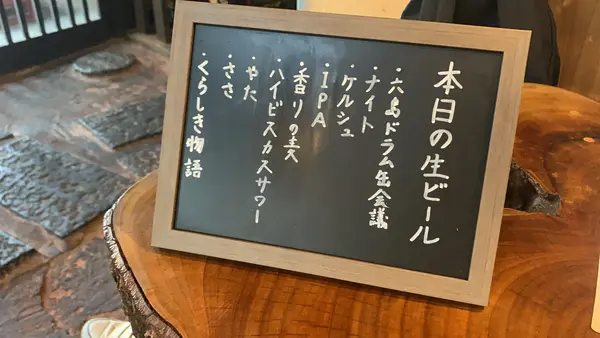 本日の生ビール
・六島ドラム缶会議
・ナイト
・ケルシュ
・IPA
・香りの麦
・ハイビスカスサワー
・やた
・ささ
・くらしき物語